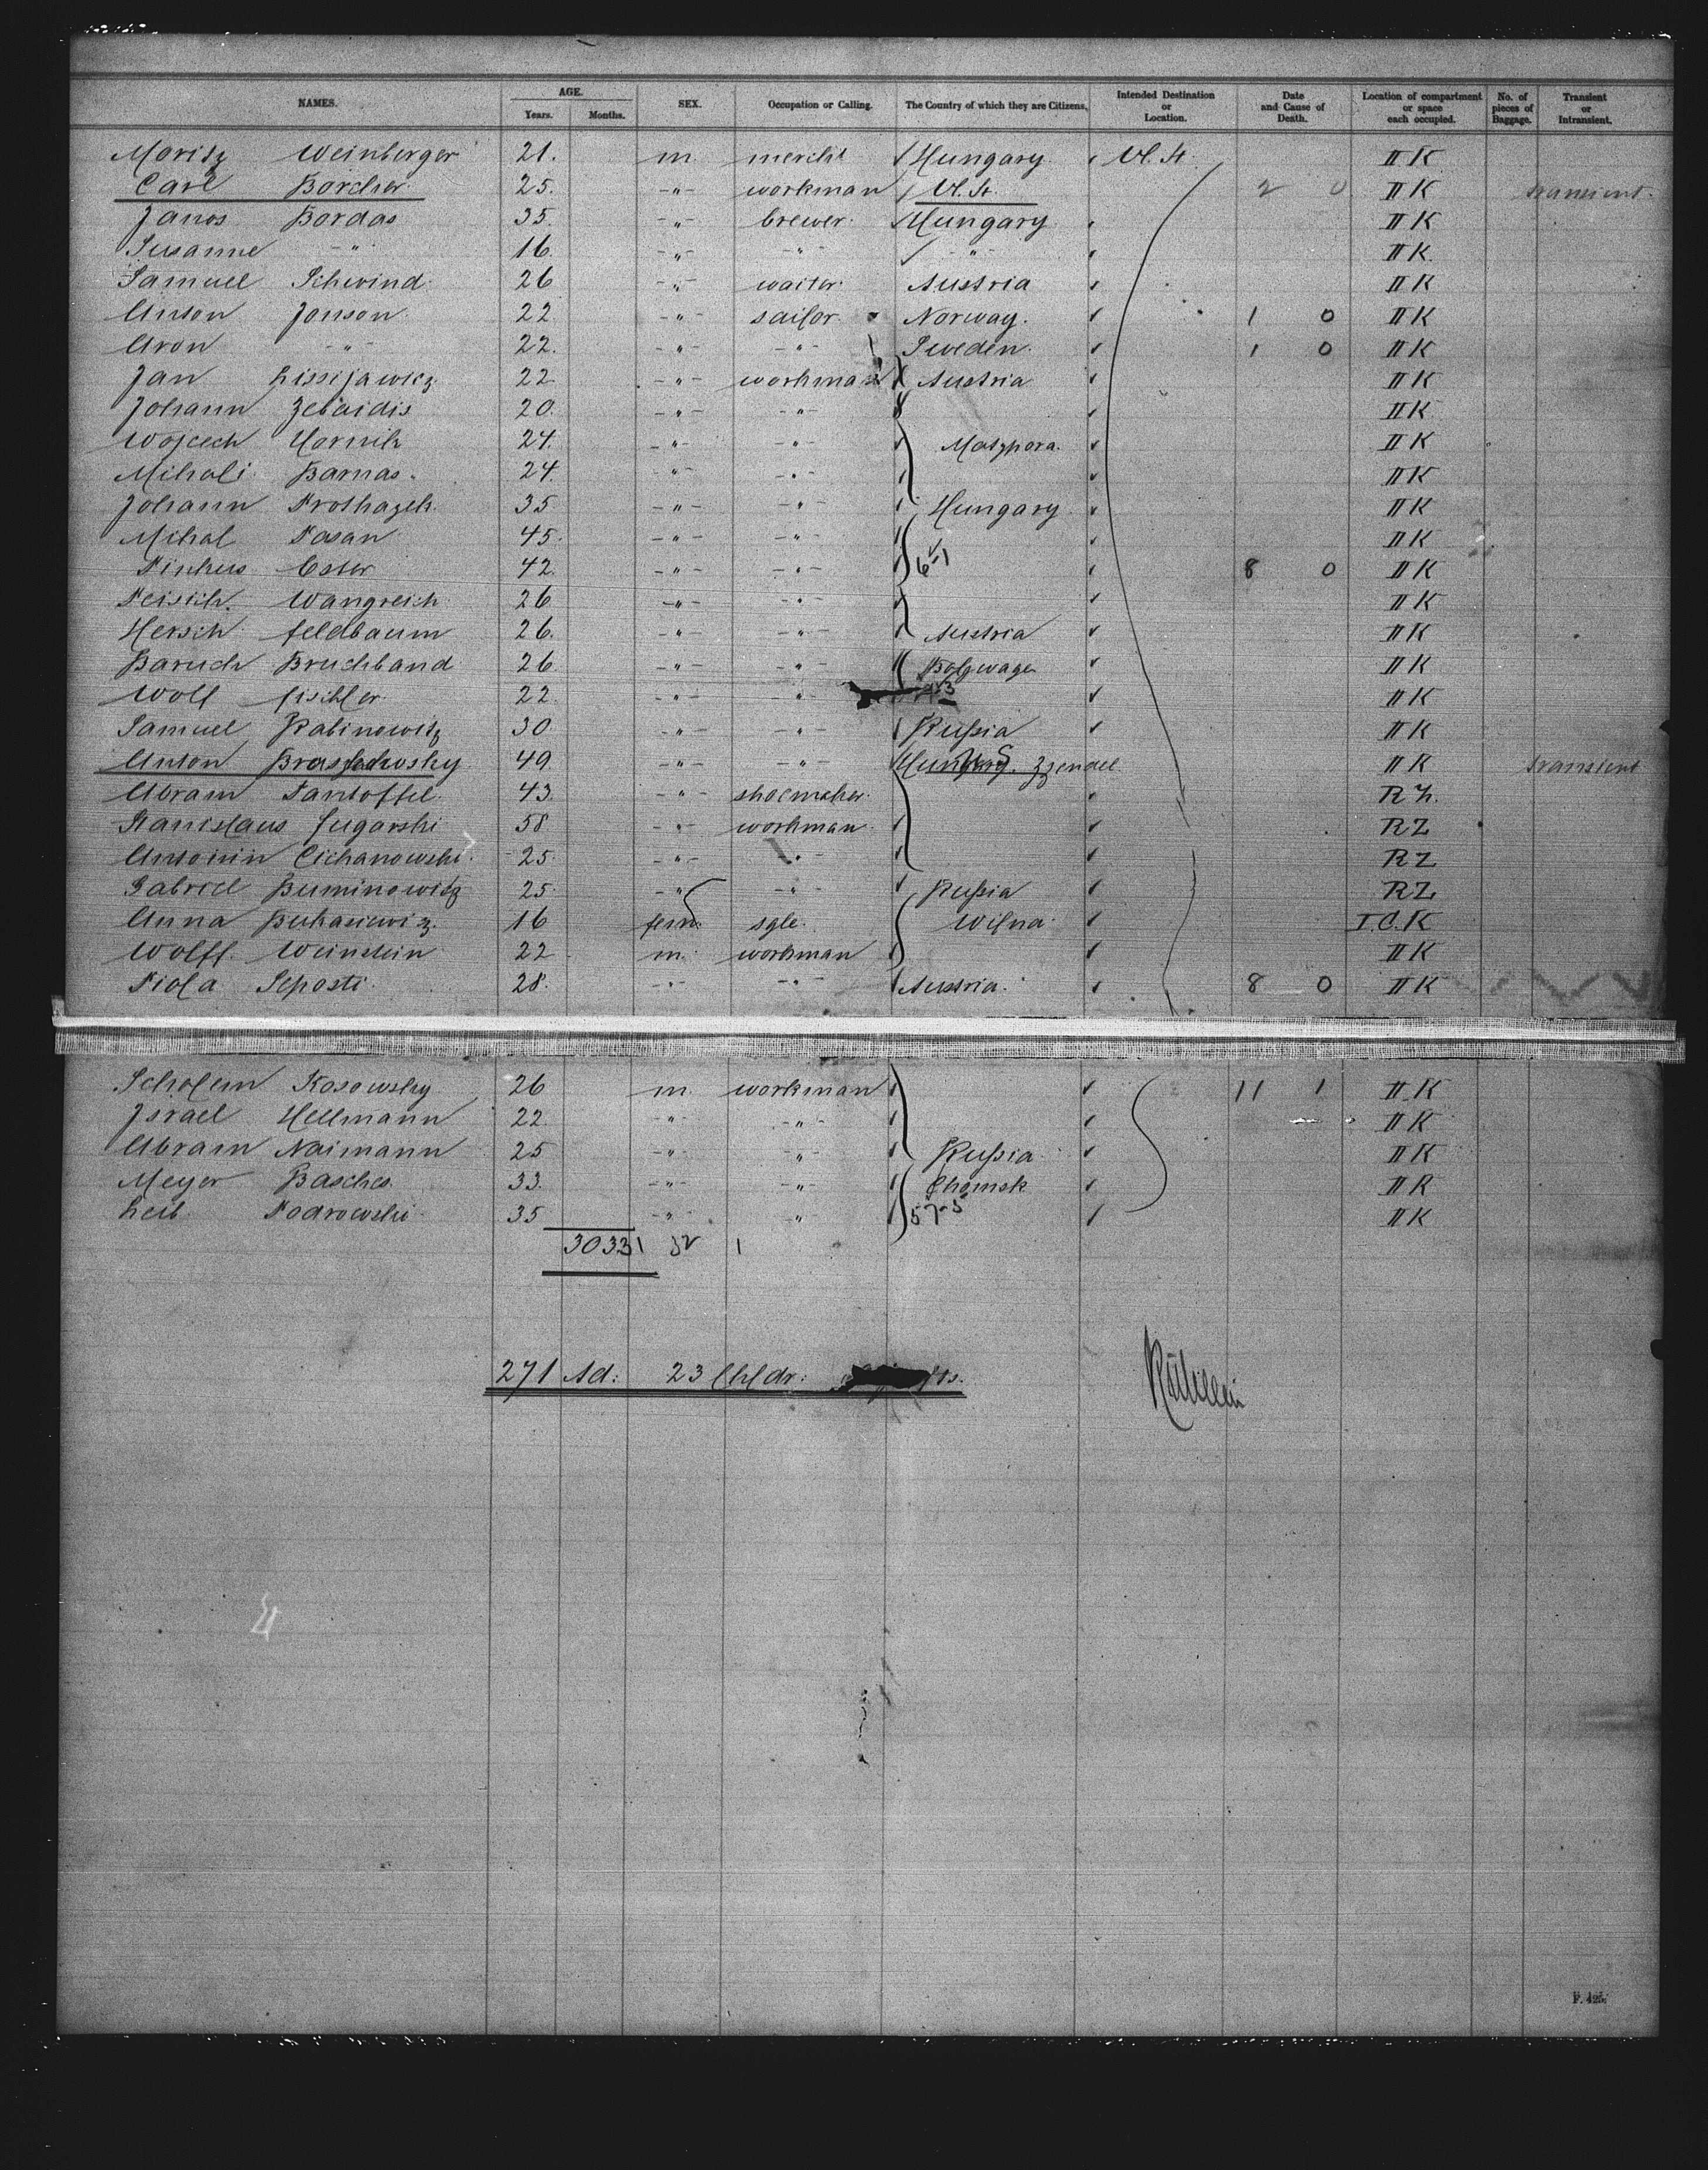 NAMES. AGE. Years. Months. SEX. Occupation or Calling. The Country of which they are Citizens. Intended Destination or Location. Date and Cause of Death. Location of compartment or space each occupied. No. of pieces of Baggage. Transient or Intransient.
Moritz Weinberger 21. m. mercht Hungary U. St. II K
Carl Borcher 25. -"- workman U. St. 2 0 II K transient.
Janos Bordas 35. -"- brewer. Hungary II K
Susanne -"- 16. -"- -"- -"- II K.
Samuel Schwind. 26 -"- waiter. Austria II K
Anton Jonson. 22 -"- sailor. Norway. 1 0 II K
Aron -"- 22. -"- -"- Sweden. 1 0 II K
Jan Lissijawicz 22 -"- workman Austria II K
Johann Zebaidis 20. -"- -"- II K
Wojcech Hornik 24. -"- -"- II K
Mihali Barnas. 24. -"- -"- II K
Johann Prothazek. 35 -"- -"- Hungary. II K
Mihal Pasan 45. -"- -"- II K
Pinkus Ester 42. -"- -"- 6-1 8 0 II K
Feisich. Wangreich 26 -"- -"- II K
Hersch Feldbaum 26. -"- -"- Austria II K
Baruch Bruchband 26. -"- -"- II K
Wolf Fischler 22. -"- -"- II K
Samuel Rabinowitz 30. -"- -"- Rußia II K
Anton 49 -"- -"- II K transient
Abram Pantoffel. 43. -"- shoemaker. R Z.
Stanislaus Jugarski 58 -"- workman. R Z
Antonin Cichanowski. 25. -"- -"- R Z
Gabriel Buminowitz 25. -"- -"- Rußia R Z
Anna Bukasiewicz. 16 fem. sgle. Wilna. I. C. K
Wolff. Weinstein 22. m. workman II K
Piola Seposti. 28. -"- -"- Austria. 8 0 II K
Scholem Kosowsky. 26 m. workman 11 1 II K
Israel Hellmann 22. -"- -"- II K
Abram Naimann 25 -"- -"- Rußia II K
Meyer Basches. 33. -"- -"- Chomsk II K
Leib Podrowski. 35 -"- -"- 57-5 II K
271 Ad: 23 Chldr:
F. 425.